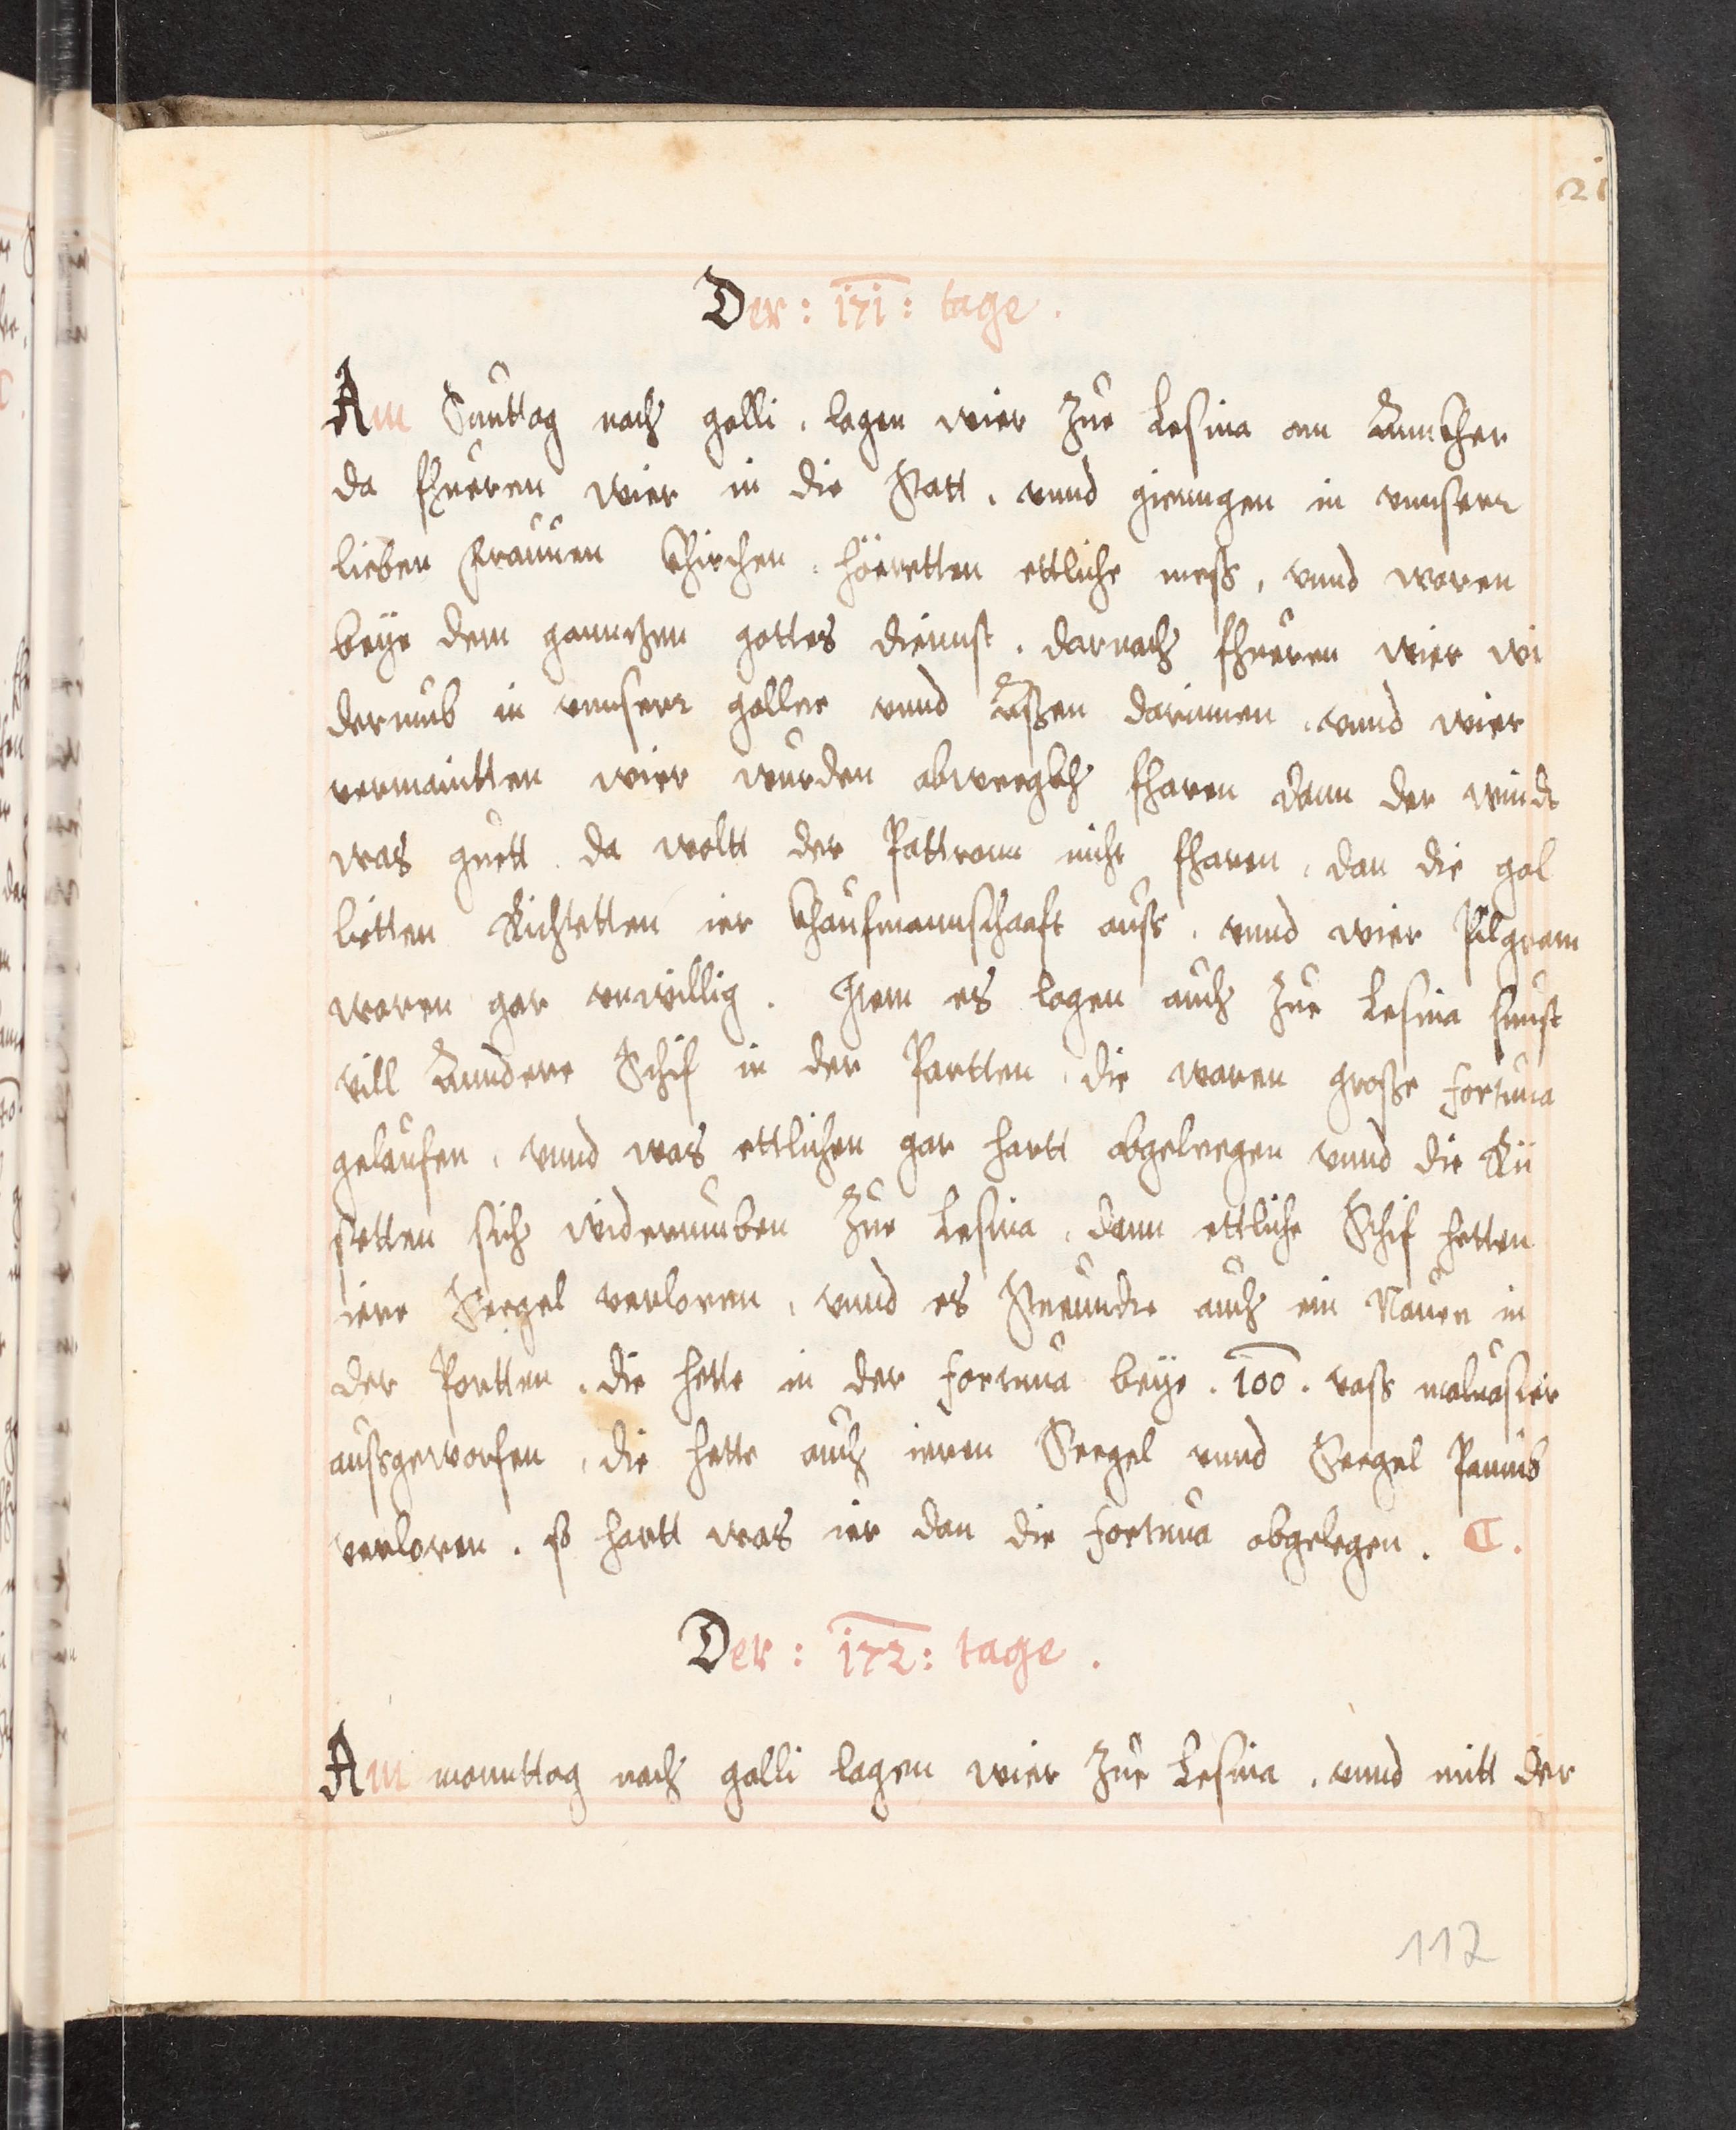 21
Der : 171 : tage .
Am Suntag nach galli . lagen wier zue Lesina am Anncher
da fhueren wier in die Statt . vnnd gienngen in vnnserr
lieben Frauuen Khirchen . höeretten ettliche mess , vnnd waren
beÿe dem ganntzen gottes diennst . darnach fhueren wier wi
derumb in vnnserr gallee vnnd Assen darinnen . vnnd wier
vermaintten wier wurden abweegkh fharen dann der windt
was guett da woltt der Pattronn nicht fharen , dan die gal
liotten Richtetten ier Khaufmannschaaft auss . vnnd wier Pilgram
waren gar vnwillig . Item es lagen auch zue Lesina sunst
vill Anndere Schif in der Portten , die waren grosse fortuna
gelaufen , vnnd was ettlichen gar hartt abgelegen vnnd die Rü
stetten sich widerumben zue Lesina , dann ettliche Schif hetten
iere Seegel verloren , vnnd es Steuundte auch ein Nauen in
der Portten . die hette in der fortuna beÿe . 100 . vass maluasier
aussgeworfen , die hette auch ieren Seegel vnnd Seegel Paumb
verloren . so hartt was ier dan die fortuna abgelegen . C .
Der : 172 : tage .
Am monnttag nach galli lagen wier zue Lesina . vnnd mitt der
112